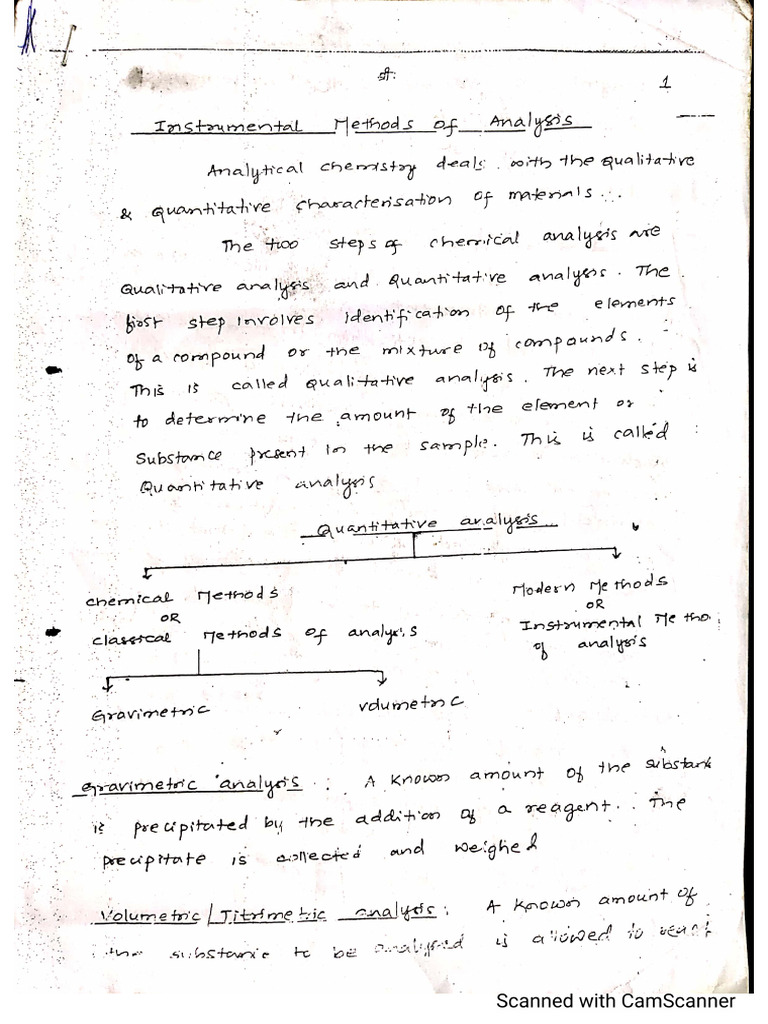 श्री:
1
Instrumental Methods of Analysis
Analytical chemistry deals with the Qualitative
& Quantitative characterisation of materials.
The two steps of chemical analysis are
Qualitative analysis and Quantitative analysis. The
first step involves identification of the elements
of a compound or the mixture of compounds.
This is called Qualitative analysis. The next step is
to determine the amount of the element or
substance present in the sample. This is called
Quantitative analysis
Quantitative analysis
chemical Methods
OR
classical Methods of analysis
Modern Methods
OR
Instrumental Metho
of analysis
Gravimetric
volumetric
Gravimetric analysis : A known amount of the substan
is precipitated by the addition of a reagent. The
precipitate is collected and weighed
Volumetric/Titrimetric analysis : A known amount of
the substance to be analysed is allowed to react
Scanned with CamScanner